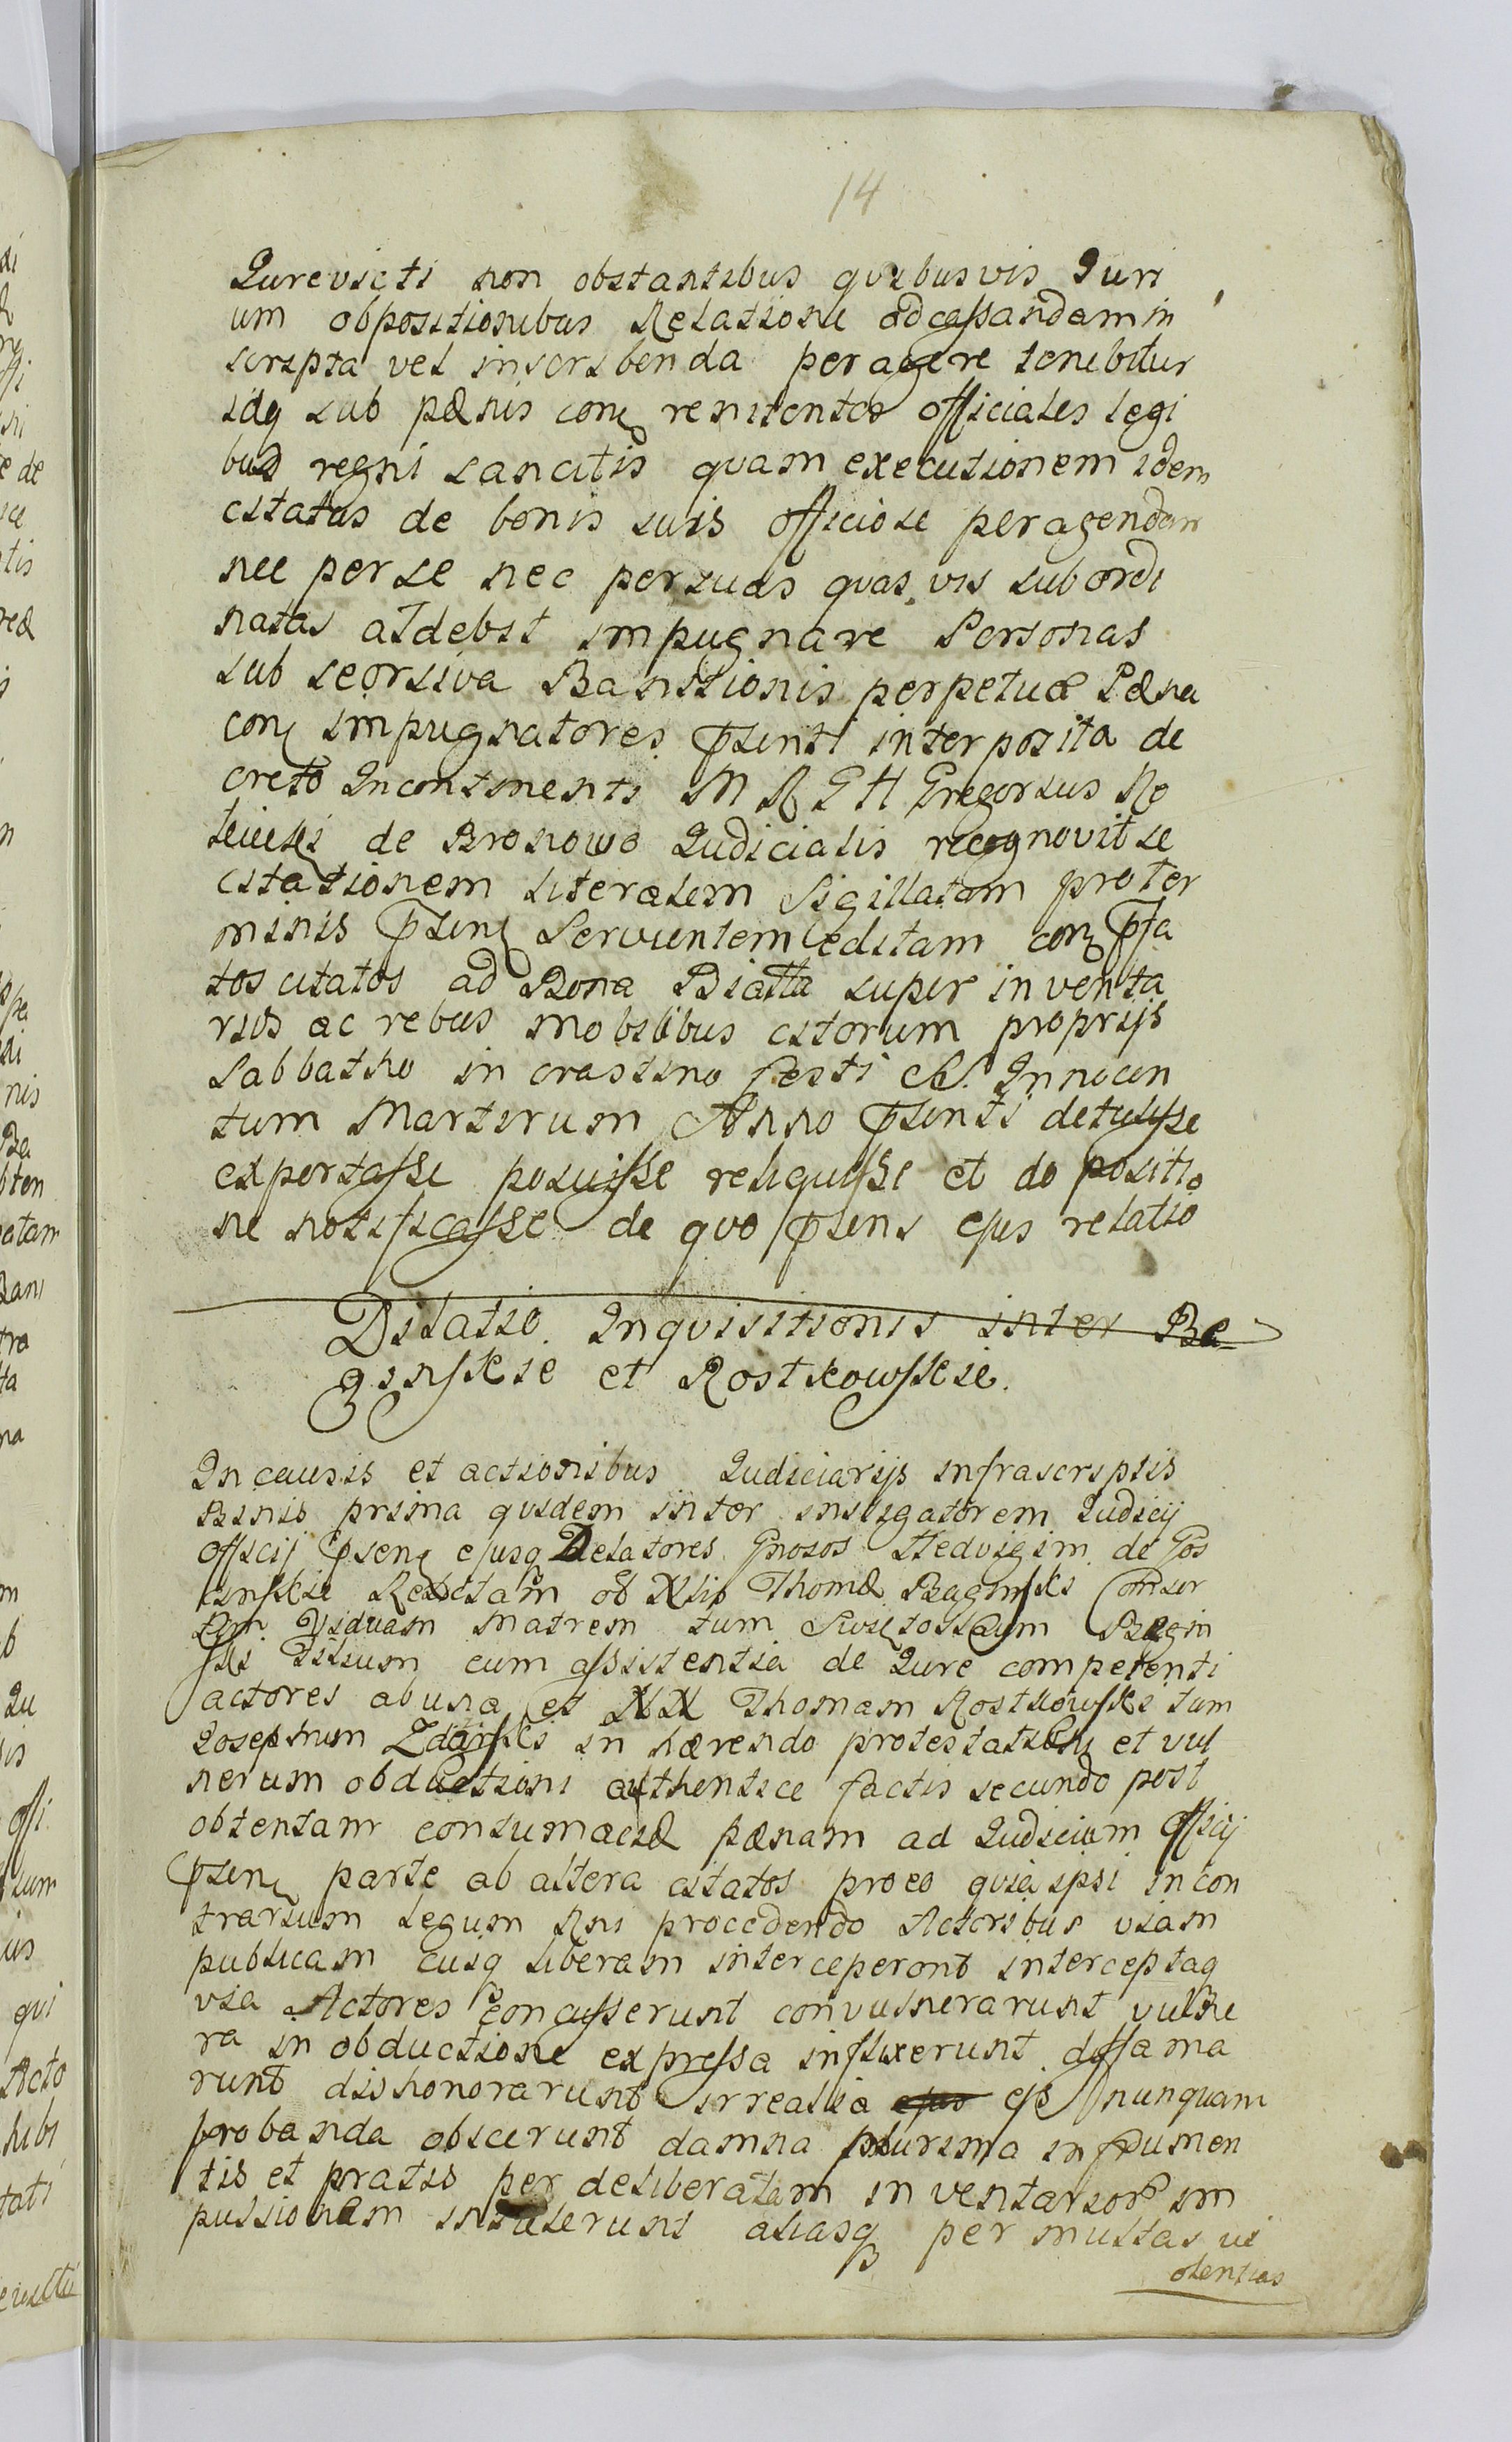 14
Jurevicti non obstantibus quibusvis Juri
um obpositionibus Relatione ad cassandam in
scripta vel inscribenda peragere tenebitur
idq sub pænis con renitentes officiales legi
bus regni sancitis quam executionem idem
citatus de bonis suis officiose peragendam
nec per se nec per suas quas vis subordi
natas at debit impugnare Personas
sub seorsiva Banitionis perpetuæ Pæna
con impugnatores psenti interposita de
creto Incontinenti M R G H Gregorius Ro
de Bronowo Judicialis recognovit se
citationem literalem Sigillatam pro ter
minis psen Servientem editam con pfa
tos citatos ad Bona Biatta super inventa
rios ac rebus mobilibus citorum proprijs
Sabbatho in crastino Festi SS. Innocen
tum Martirum Anno psenti detulisse
exportasse posuisse reliquisse et de positio
ne notificasse de quo psens ejus relatio
Dilatio Inquisitionis inter Ba
ginskie et Rostkowskie.
In causis et actionibus Judiciarijs infrascriptis
Binis prima quidem inter instigatorem Judicij
Officij psen ejusq Delatores Gnosos Hedvigim de Gos
Relictam ol Nlis Thomæ Baginski Consor
tem Viduam Matrem tum Bagin
ski Filium cum assistentia de Jure competenti
actores ab una et NN Thomam Rostkowski tum
Josephum in hærendo protestationi et vul
nerum obductioni authentice factis secundo post
obtentam contumaciæ pænam ad Judicium Officij
psen parte ab altera citatos proeo quia ipsi in con
trarium Legum Rni procedendo Actoribus viam
publicam cuiq liberam interceperont interceptaq
via Actores concusserunt convulnerarunt vulne
ra in obductione expressa inflixerunt diffama
runt dishonorarunt irrealia ejus ejs nunquam
probanda objecerunt damna plurima in frumen
tis et pratis per deliberatam inventarior im
pulsionem intulerunt aliasq per multas vi
olentias